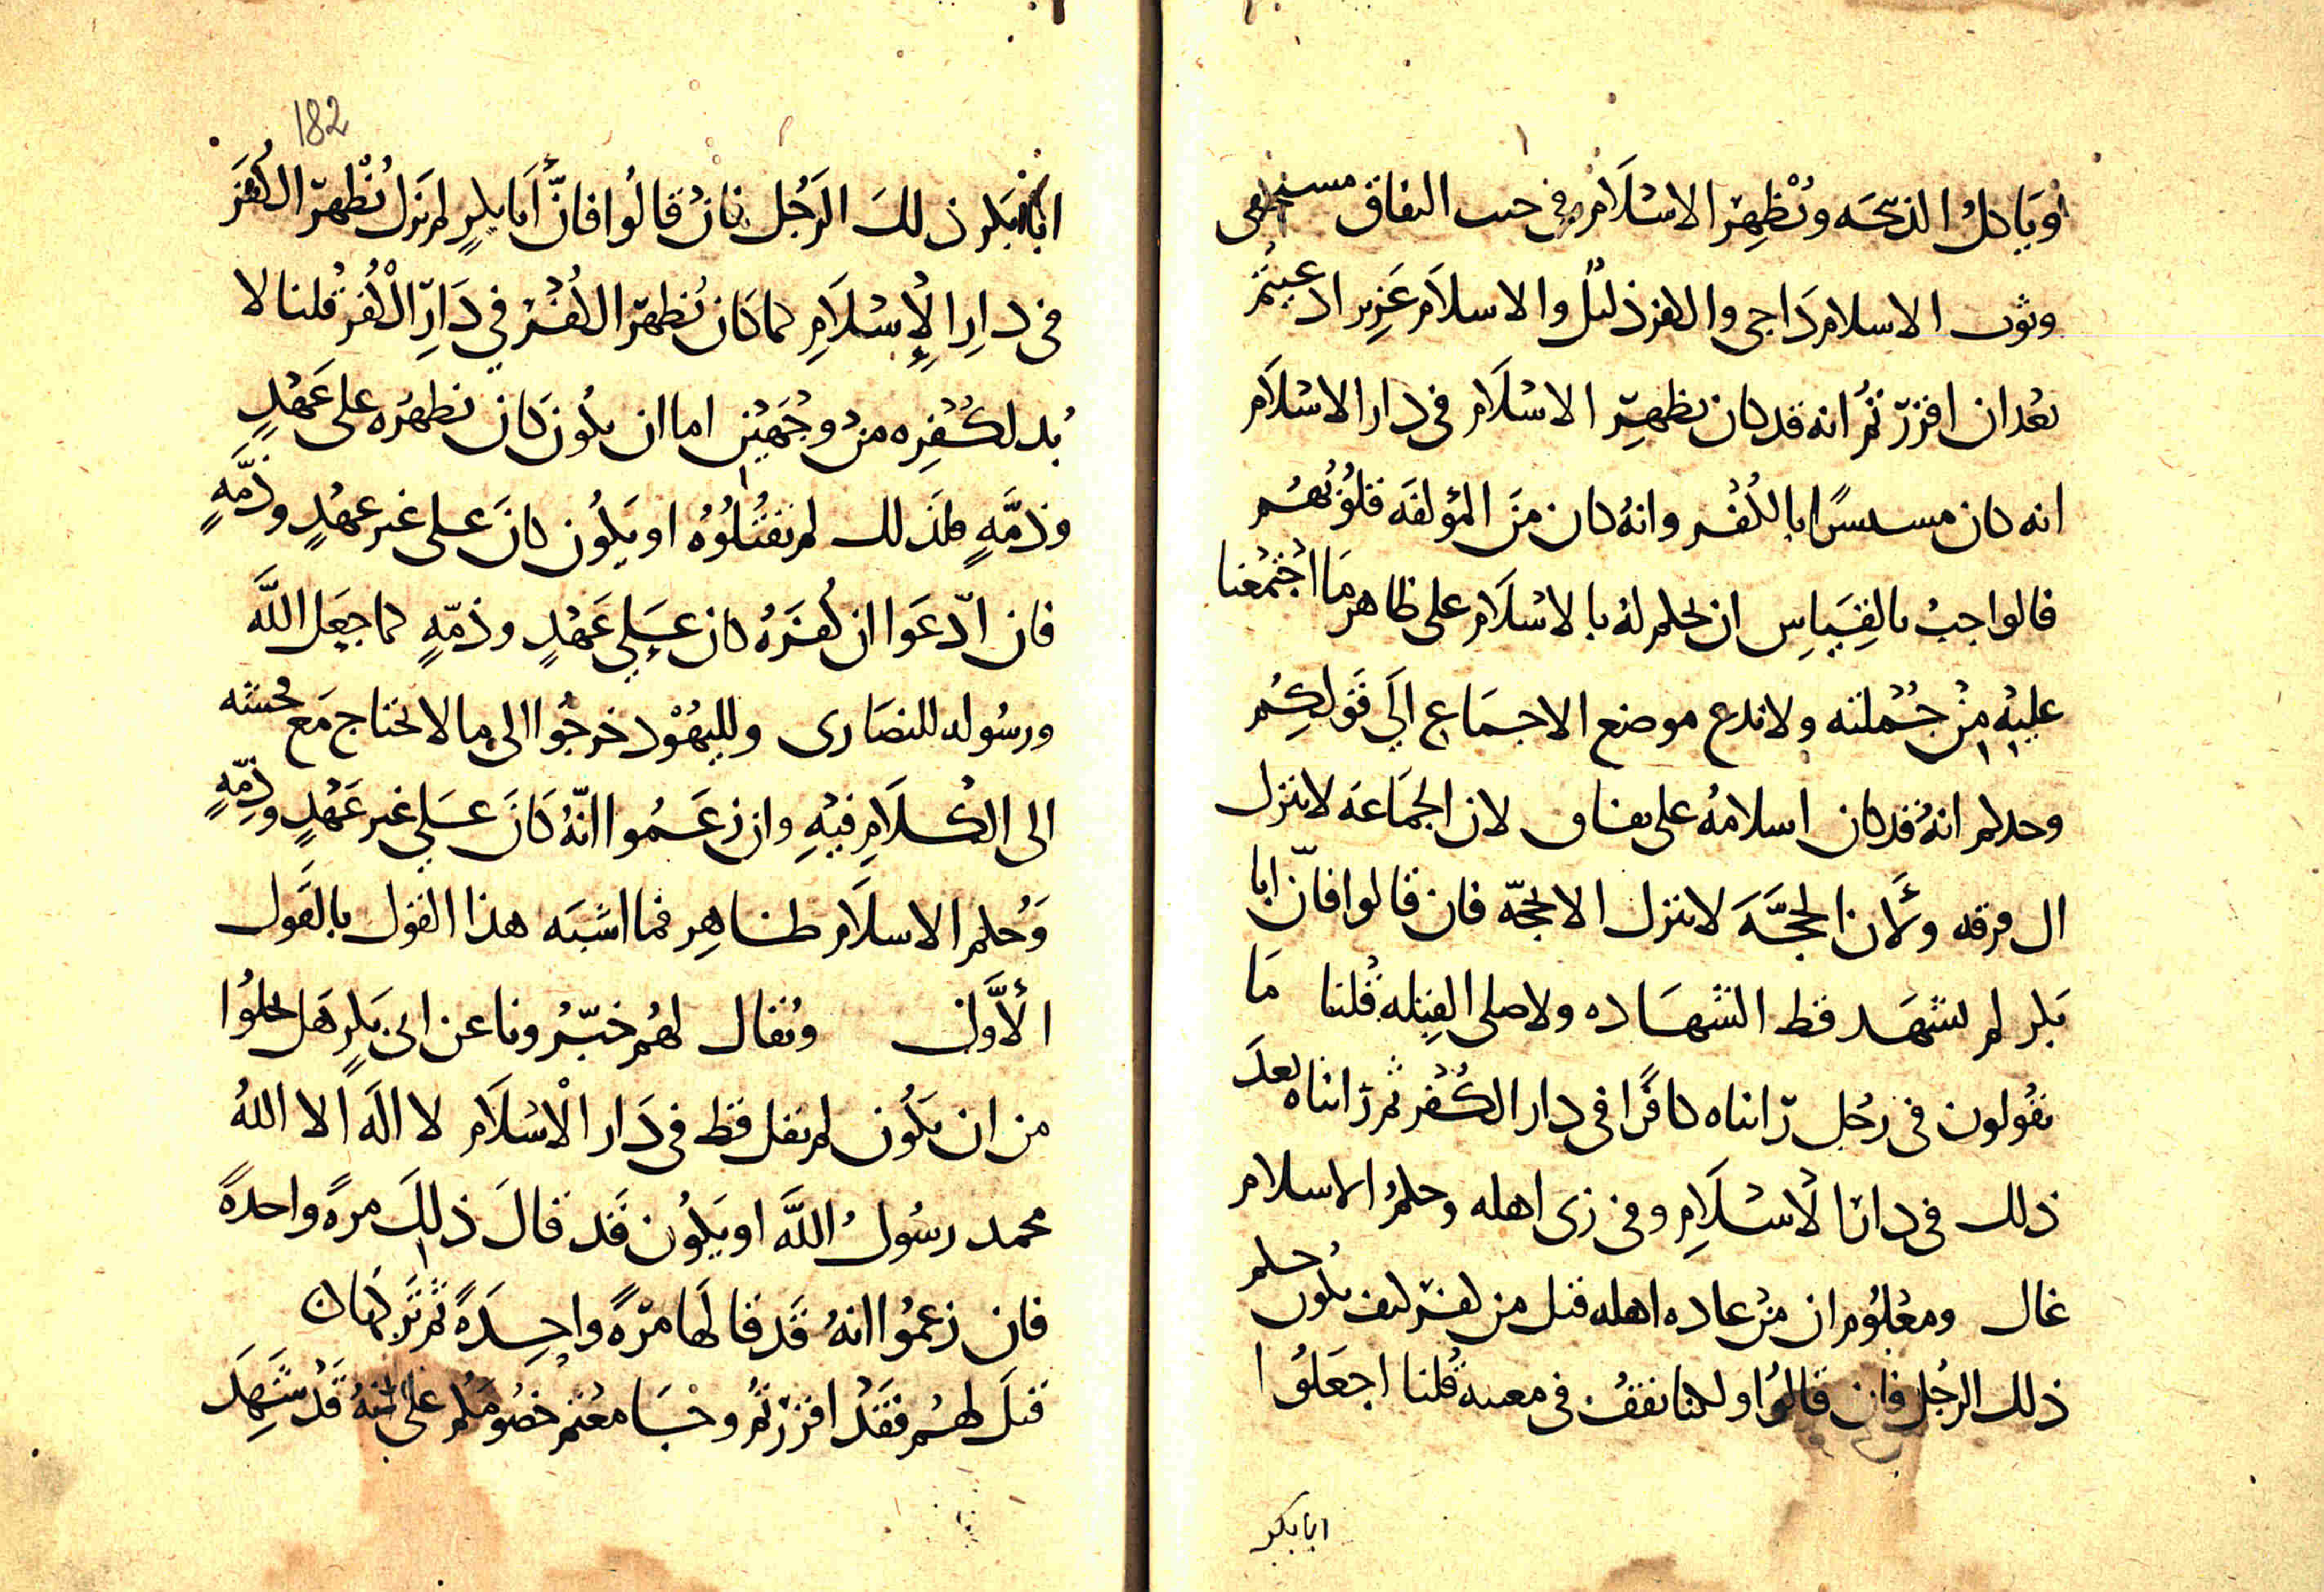 وياكل الذبيحه ويظهر الاسلام في جيب النفاق مستخفى
وثوب الاسلام داجى والكفر ذليل والاسلام عزيز ادعيتم
بعد ان اقررتم انه قد كان يظهر الاسلام فى دار الاسلام
انه كان مستسرا بالكفر وانه كان من المؤلفه قلوبهم
فالواجب بالقياس ان نحكم له بالاسلام على ظاهر ما اجتمعنا
عليه من جملته ولا ندع موضع الاجماع الي قولكم
وحدكم انه قد كان اسلامه على نفاق لان الجماعه لا تنزل
الى فرقه ولأن الحجة لا تنزل الا بحجة فان قالوا فان ابا
بكر لم يشهد قط الشهاده ولا صلى القبله قلنا ما
تقولون فى رجل رايناه كافرا فى دار الكفر ثم رايناه بعد
ذلك فى دار الاسلام وفى زى اهله وحكم الاسلام
غالب ومعلوم ان من عاده اهله قتل من كفر كيف يكون حكم
ذلك الرجل فان قالوا ولكنا نقف فى معيبه قلنا اجعلوا
ابا بكر
182
ابا بكر ذلك الرجل فان قالوا فان أبا بكر لم يزل يظهر الكفر
فى دار الإسلام كما كان يظهر الكفر في دار الكفر قلنا لا
بد لكفره من وجهين اما ان يكون كان يظهره على عهد
وذمة فلذلك لم تقتلوه او يكون كان على غير عهد وذمة
فان ادعوا ان كفره كان على عهد وذمة كما جعل الله
ورسوله للنصارى ولليهود خرجوا الى ما لا نحتاج مع
الى الكلام فيه وان زعموا انه كان على غير عهد وذمة
وحكم الاسلام ظاهر فما اشبه هذا القول بالقول
الأول ويقال لهم خبرونا عن ابى بكر هل يخلوا
من ان يكون لم يقل قط فى دار الاسلام لا اله الا الله
محمد رسول الله او يكون قد قال ذلك مرة واحدة
فان زعموا انه قد قالها مرة واحدة ثم تركها كان
قيل لهم فقد اقررتم وجميعا معتم خصومكم على انه قد شهد